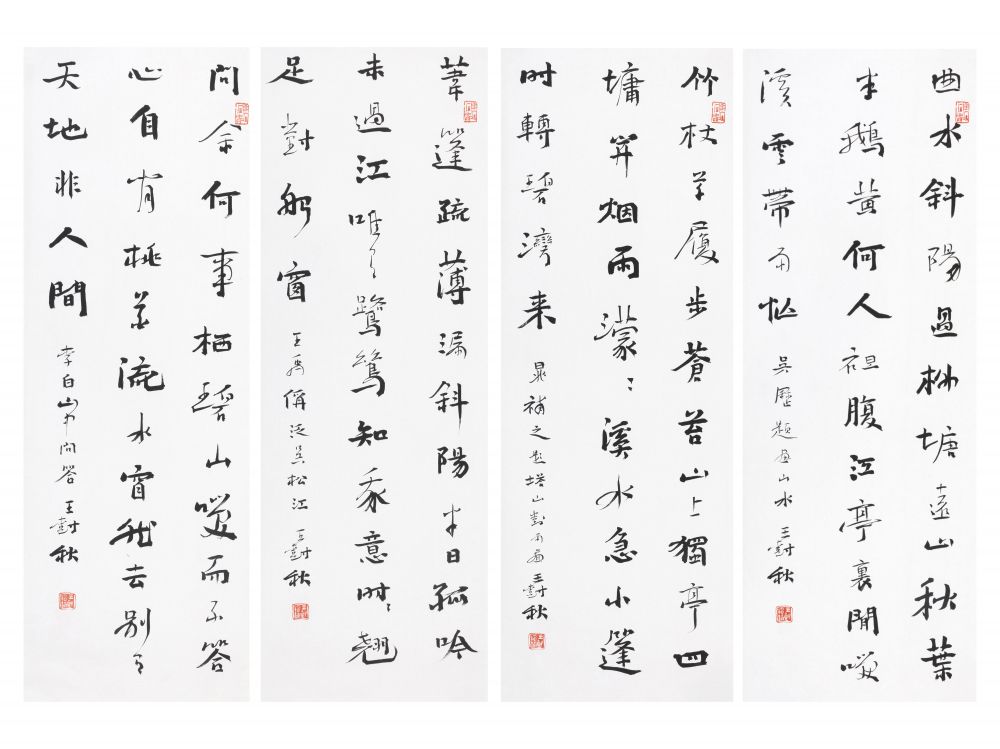 曲水斜陽過林塘遠山秋葉
半鵝黃何人袒腹江亭裏閒咲
溪雲帶雨忙 吳歷題畫山水 王對秋
竹杖草屨步蒼苔山上獨亭四
牖開烟雨濛〻溪水急小篷
时轉碧灣来 晁補之題塔山對雨圖 王對秋
葦篷疏薄漏斜陽半日孤吟
未過江唯有鷺鷥知我意时〻翹
足對船窗 王禹偁泛吳松江 王對秋
問余何事栖碧山咲而不答
心自閒桃花流水窅然去別有
天地非人間 李白山中問答 王對秋